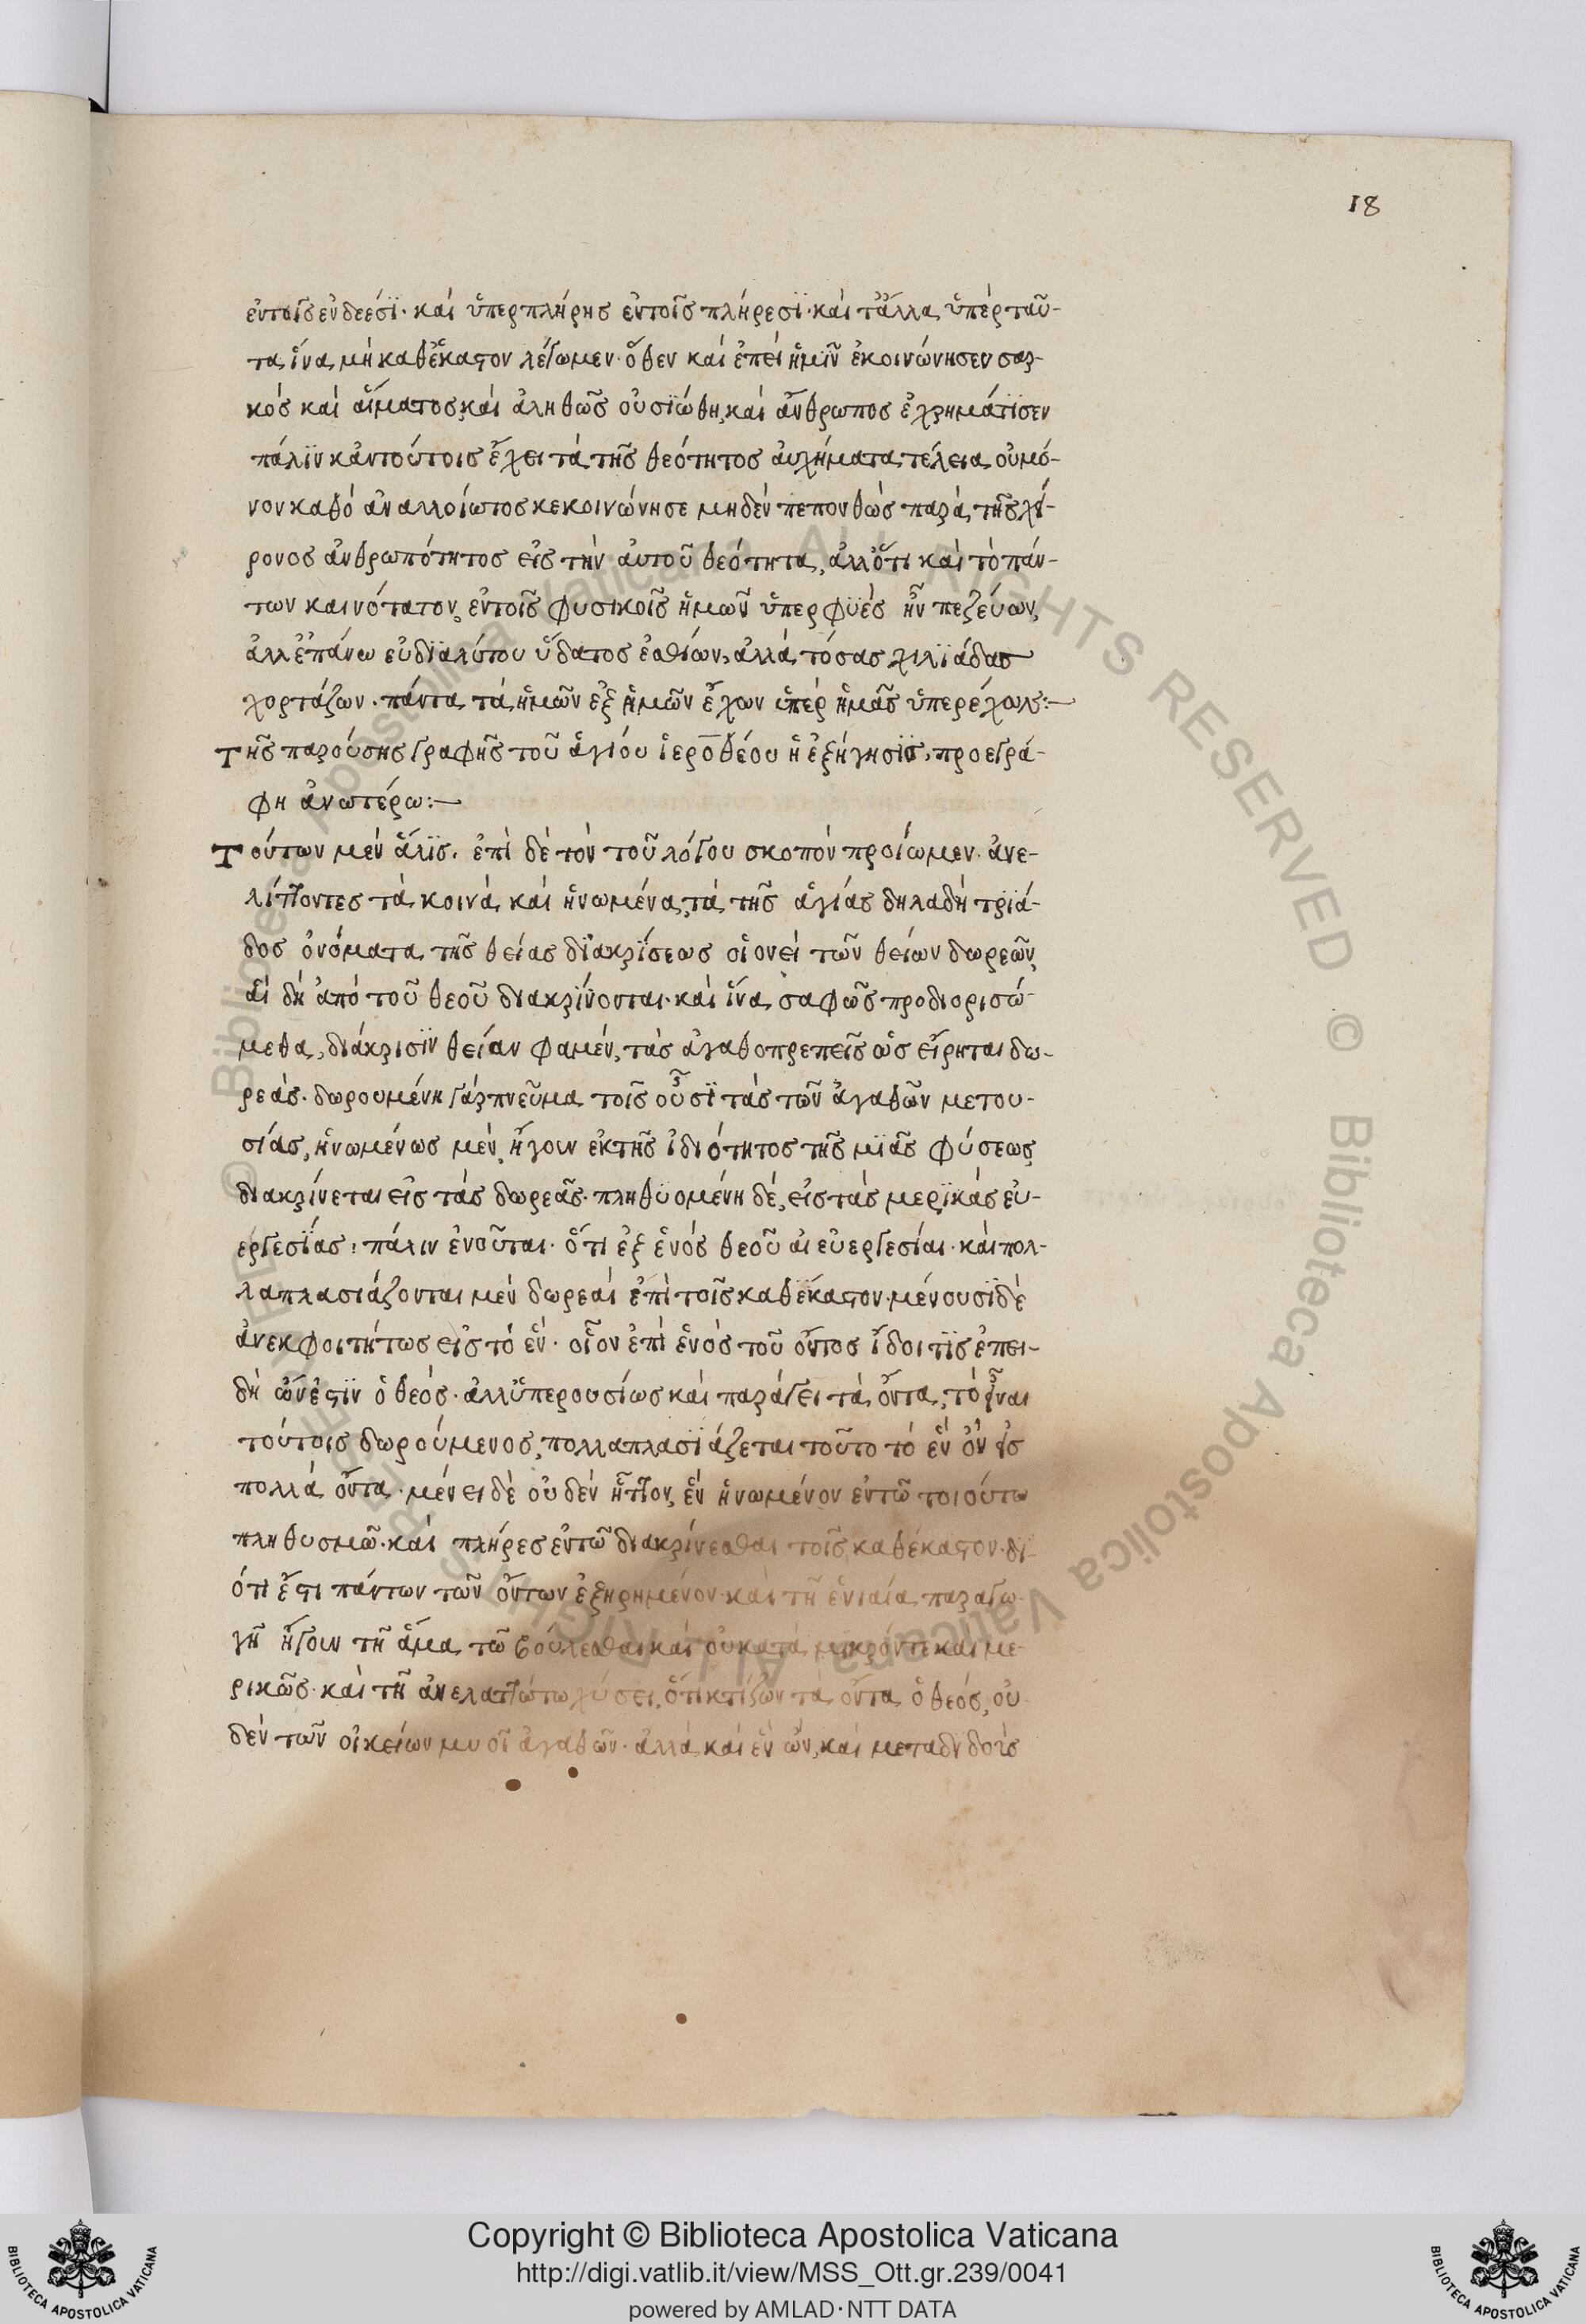 18
ἐν τοῖς ἐνδεέσϊ· καὶ ὑπερπλήρης ἐν τοῖς πλήρεσϊ· καὶ τἄλλα ὑπὲρ ταῦ-
τα, ἵνα μὴ καθέκαστον λέγωμεν· ὅθεν καὶ ἐπεὶ ἡμῖν ἐκοινώνησεν σαρ-
κὸς καὶ αἵματος, καὶ ἀληθῶς οὐσϊώθη, καὶ ἄνθρωπος ἐχρημάτϊσεν
πάλϊν κἀν τούτοις ἔχει τὰ τῆς θεότητος αὐχήματα τέλεια, οὐ μό-
νον καθὸ ἀναλλοίωτος κεκοινώνησε μηδὲν πεπονθὼς παρὰ τῆς χεί-
ρονος ἀνθρωπότητος εἰς τὴν αὐτοῦ θεότητα, ἀλλ' ὅτι καὶ τὸ πάν-
των καινότατον, ἐν τοῖς φυσικοῖς ἡμῶν ὑπερφϋὲς ἦν πεζεύων,
ἀλλ' ἐπάνω εὐδϊαλύτου ὕδατος ἐσθίων, ἀλλὰ τόσας χιλϊάδας
χορτάζων· πάντα τὰ ἡμῶν ἐξ ἡμῶν ἔχων ὑπὲρ ἡμᾶς ὑπερεχόντως:—
Τῆς παρούσης γραφῆς τοῦ ἁγίου ἱεροθέου ἡ ἐξήγησϊς, προεγρά-
φη ἀνωτέρω:—
Τούτων μὲν ἅλϊς. ἐπὶ δὲ τὸν τοῦ λόγου σκοπὸν προΐωμεν· ἀνε-
λίττοντες τὰ κοινὰ καὶ ἡνωμένα, τὰ τῆς ἁγίας δηλαδὴ τρϊά-
δος ὀνόματα τῆς θείας διακρίσεως οἱονεὶ τῶν θείων δωρεῶν,
αἳ δὴ ἀπὸ τοῦ θεοῦ διακρίνονται· καὶ ἵνα σαφῶς προδιορισώ-
μεθα, διάκρισϊν θείαν φαμέν, τὰς ἀγαθοπρεπεῖς ὡς εἴρηται δω-
ρεάς· δωρουμένη γὰρ πνεῦμα τοῖς οὖσϊ τὰς τῶν ἀγαθῶν μετου-
σίας, ἡνωμένως μέν, ἤγουν ἐκ τῆς ἰδιότητος τῆς μϊᾶς φύσεως
διακρίνεται εἰς τὰς δωρεᾶς· πληθυομένη δέ, εἰς τὰς μερϊκὰς εὐ-
εργεσίας: πάλιν ἑνοῦται· ὅτι ἐξ ἑνὸς θεοῦ αἱ εὐεργεσίαι· καὶ πολ-
λαπλασιάζονται μὲν δωρεαὶ ἐπὶ τοῖς καθέκαστον· μένουσϊ δὲ
ἀνεκφοιτήτως εἰς τὸ ἕν· οἷον ἐπὶ ἑνὸς τοῦ ὄντος ἴδοι τϊς ἐπει-
δὴ ὤν ἐστϊν ὁ θεός· ἀλλ' ὑπερουσίως καὶ παράγει τὰ ὄντα, τὸ εἶναι
τούτοις δωρούμενος, πολλαπλασϊάζεται τοῦτο τὸ ἓν ὂν εἰς
πολλὰ ὄντα· μένει δὲ οὐδὲν ἧττον, ἓν ἡνωμένον ἐν τῶ τοιούτω
πληθυσμῶ· καὶ πλῆρες ἐν τῶ διακρίνεσθαι τοῖς καθέκαστον· δϊ-
ότι ἔστι πάντων τῶν ὄντων ἐξηρημένον· καὶ τῆ ἑνιαία παραγω-
γῆ ἤγουν τῆ ἅμα τῶ βούλεσθαι καὶ οὐ κατὰ μικρόν τε καὶ με-
ρικῶς· καὶ τῆ ἀνελαττώτω χύσει, ὅτι κτίζων τὰ ὄντα ὁ θεός, οὐ-
δὲν τῶν οἰκείων μυοῖ ἀγαθῶν· ἀλλὰ καὶ ἓν ὤν, καὶ μεταδϊδοὺς
Copyright © Biblioteca Apostolica Vaticana
http://digi.vatlib.it/view/MSS_Ott.gr.239/0041
powered by AMLAD·NTT DATA
BIBLIOTECA APOSTOLICA VATICANA
BIBLIOTECA APOSTOLICA VATICANA
© Biblioteca Apostolica Vaticana ALL RIGHTS RESERVED
© Biblioteca Apostolica Vaticana ALL RIGHTS RESERVED